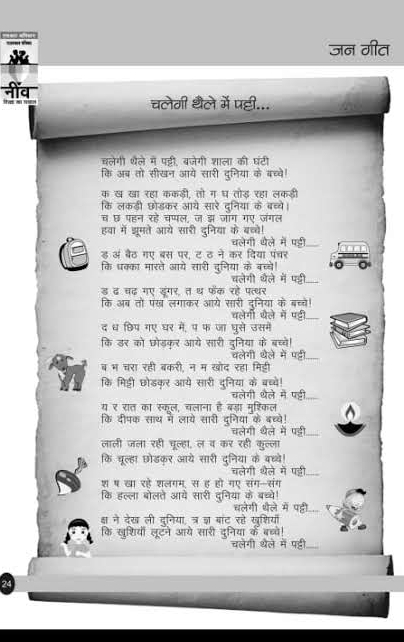 जन गीत
नींव
चलेगी थैले में पट्टी...
चलेगी थैले में पट्टी, बजेगी शाला की घंटी
कि अब तो सीखन आये सारी दुनिया के बच्चे!
क ख खा रहा ककड़ी, तो ग घ तोड़ रहा लकड़ी
कि लकड़ी छोड़कर आये सारे दुनिया के बच्चे।
च छ पहन रहे चप्पल, ज झ जाग गए जंगल
हवा में झूमते आये सारी दुनिया के बच्चे!
चलेगी थैले में पट्टी.....
ड अं बैठ गए बस पर, ट ठ ने कर दिया पंचर
कि धक्का मारते आये सारी दुनिया के बच्चे!
चलेगी थैले में पट्टी.....
ड ढ चढ़ गए डूंगर, त थ फेंक रहे पत्थर
कि अब तो पंख लगाकर आये सारी दुनिया के बच्चे!
चलेगी थैले में पट्टी.....
द ध छिप गए घर में, प फ जा घुसे उसमें
कि डर को छोड़कर आये सारी दुनिया के बच्चे!
चलेगी थैले में पट्टी.....
ब भ चरा रही बकरी, न म खोद रहा मिट्टी
कि मिट्टी छोड़कर आये सारी दुनिया के बच्चे!
चलेगी थैले में पट्टी.....
य र रात का स्कूल, चलाना है बड़ा मुश्किल
कि दीपक साथ में लाये सारी दुनिया के बच्चे!
चलेगी थैले में पट्टी.....
लाली जला रही चूल्हा, ल व कर रही कुल्ला
कि चूल्हा छोडकर आये सारी दुनिया के बच्चे!
चलेगी थैले में पट्टी.....
श ष खा रहे शलगम, स ह हो गए संग-संग
कि हल्ला बोलते आये सारी दुनिया के बच्चे!
चलेगी थैले में पट्टी.....
क्ष ने देख ली दुनिया, त्र ज्ञ बांट रहे खुशियाँ
कि खुशियाँ लूटने आये सारी दुनिया के बच्चे!
चलेगी थैले में पट्टी.....
24